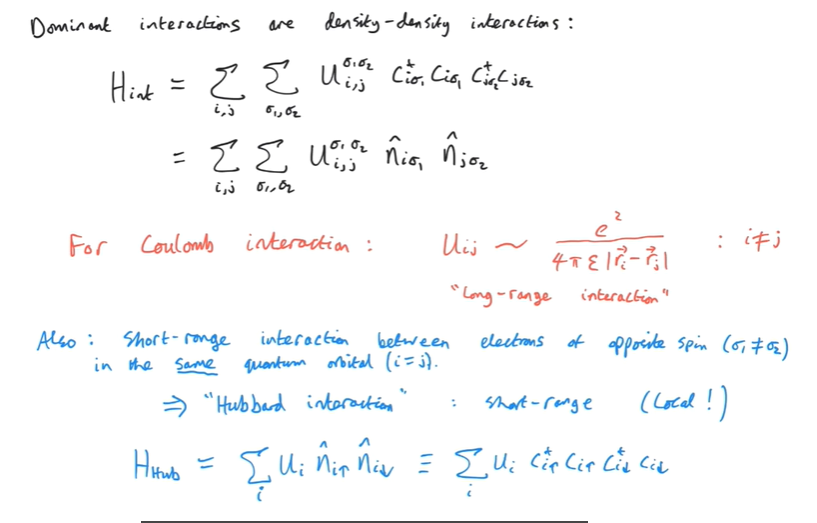 Dominant interactions are density-density interactions:
H_int = ∑_{i,j} ∑_{σ₁,σ₂} U_{i,j}^{σ₁σ₂} c†_{iσ₁} c_{iσ₁} c†_{jσ₂} c_{jσ₂}
= ∑_{i,j} ∑_{σ₁,σ₂} U_{i,j}^{σ₁σ₂} n̂_{iσ₁} n̂_{jσ₂}
For Coulomb interaction: U_{ij} ~ e² / (4πε|r⃗_i - r⃗_j|) : i≠j
"Long-range interaction"
Also: short-range interaction between electrons of opposite spin (σ₁≠σ₂)
in the same quantum orbital (i=j).
⇒ "Hubbard interaction" : short-range (Local!)
H_Hub = ∑_i U_i n̂_{i↑} n̂_{i↓} ≡ ∑_i U_i c†_{i↑} c_{i↑} c†_{i↓} c_{i↓}